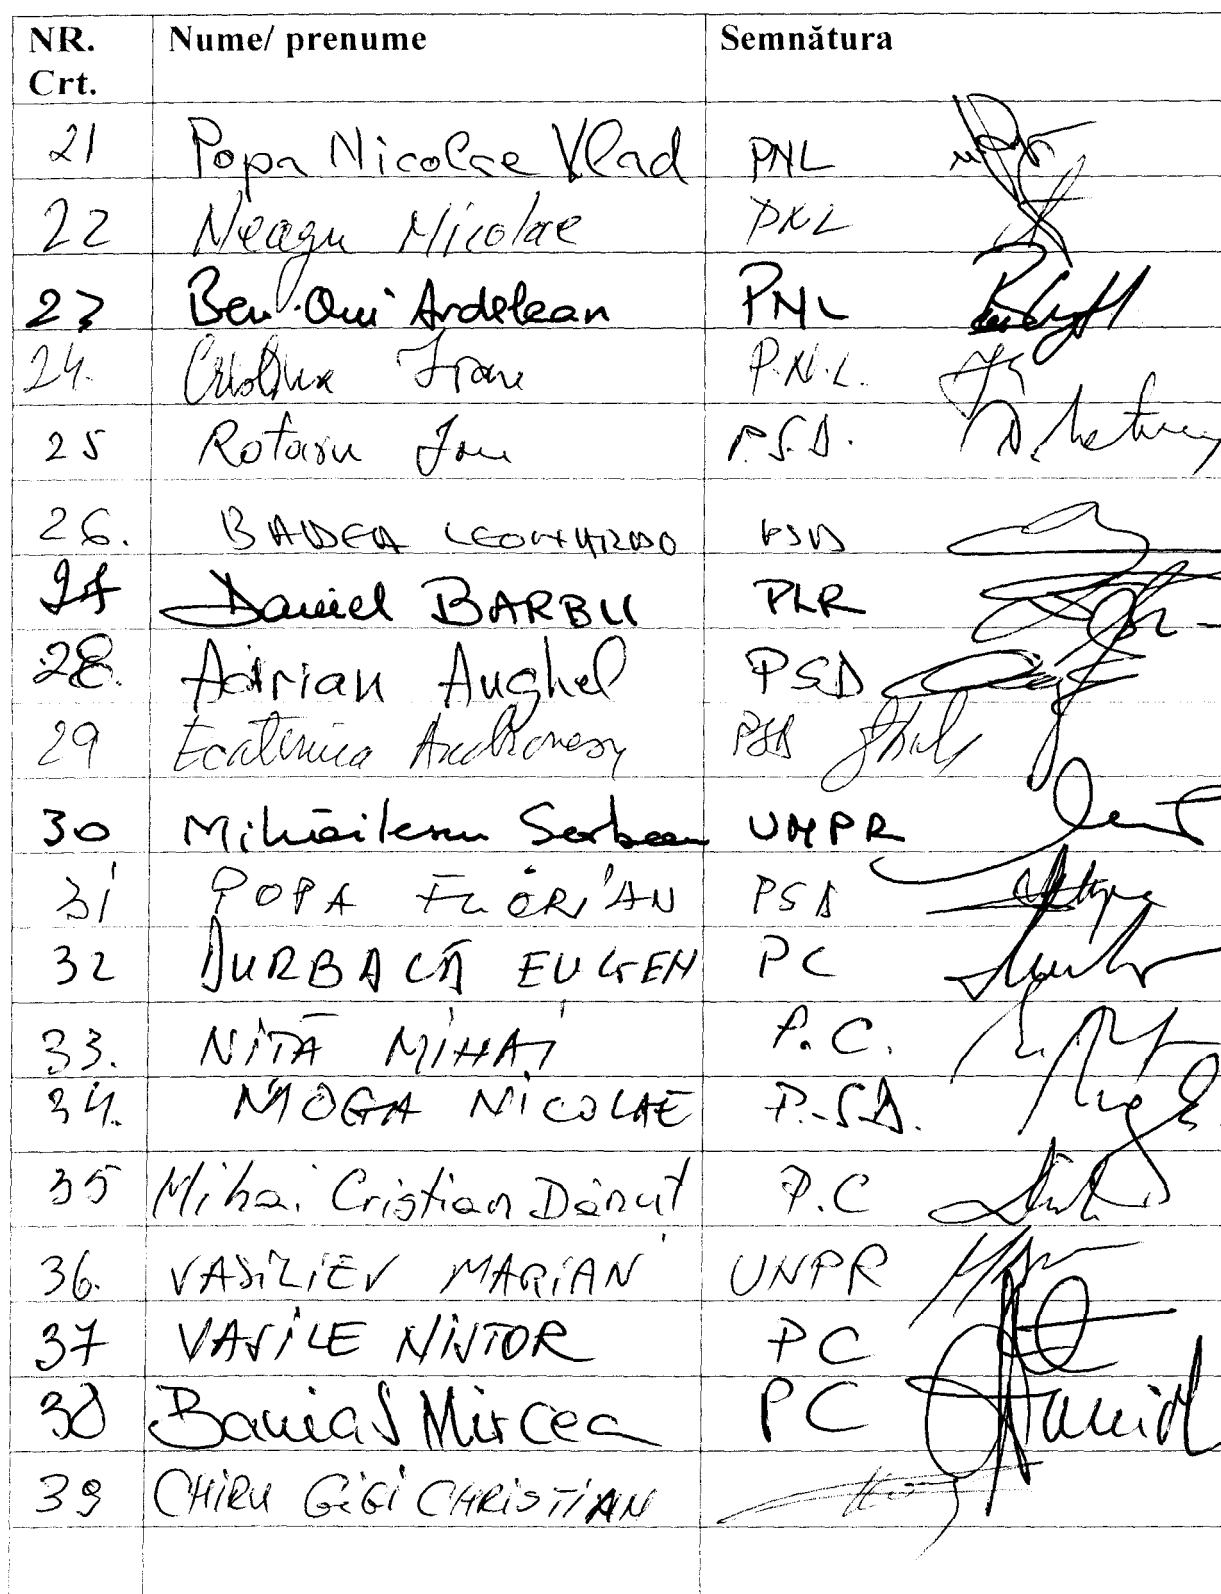 NR. Crt. Nume/ prenume Semnătura
21 Popa Nicolae Vlad PNL
22 Neagu Nicolae PNL
23 Ben-Oni Ardelean PNL
24. P.N.L.
25 Rotaru Ion P.S.D.
26. BADEA LEONARDO PSD
27 Daniel BARBU PLR
28. Adrian Anghel PSD
29 Ecaterina Andronescu PSD
30 Mihăilescu Serban UNPR
31 POPA FLORIAN PSD
32 DURBACĂ EUGEN PC
33. NITĂ MIHAI P.C.
34. MOGA NICOLAE P.SD.
35 Mihai Cristian Dănut P.C
36. VASILIEV MARIAN UNPR
37 VASILE NISTOR PC
38 Banias Mircea PC
39 CHIRU GIGI CHRISTIAN